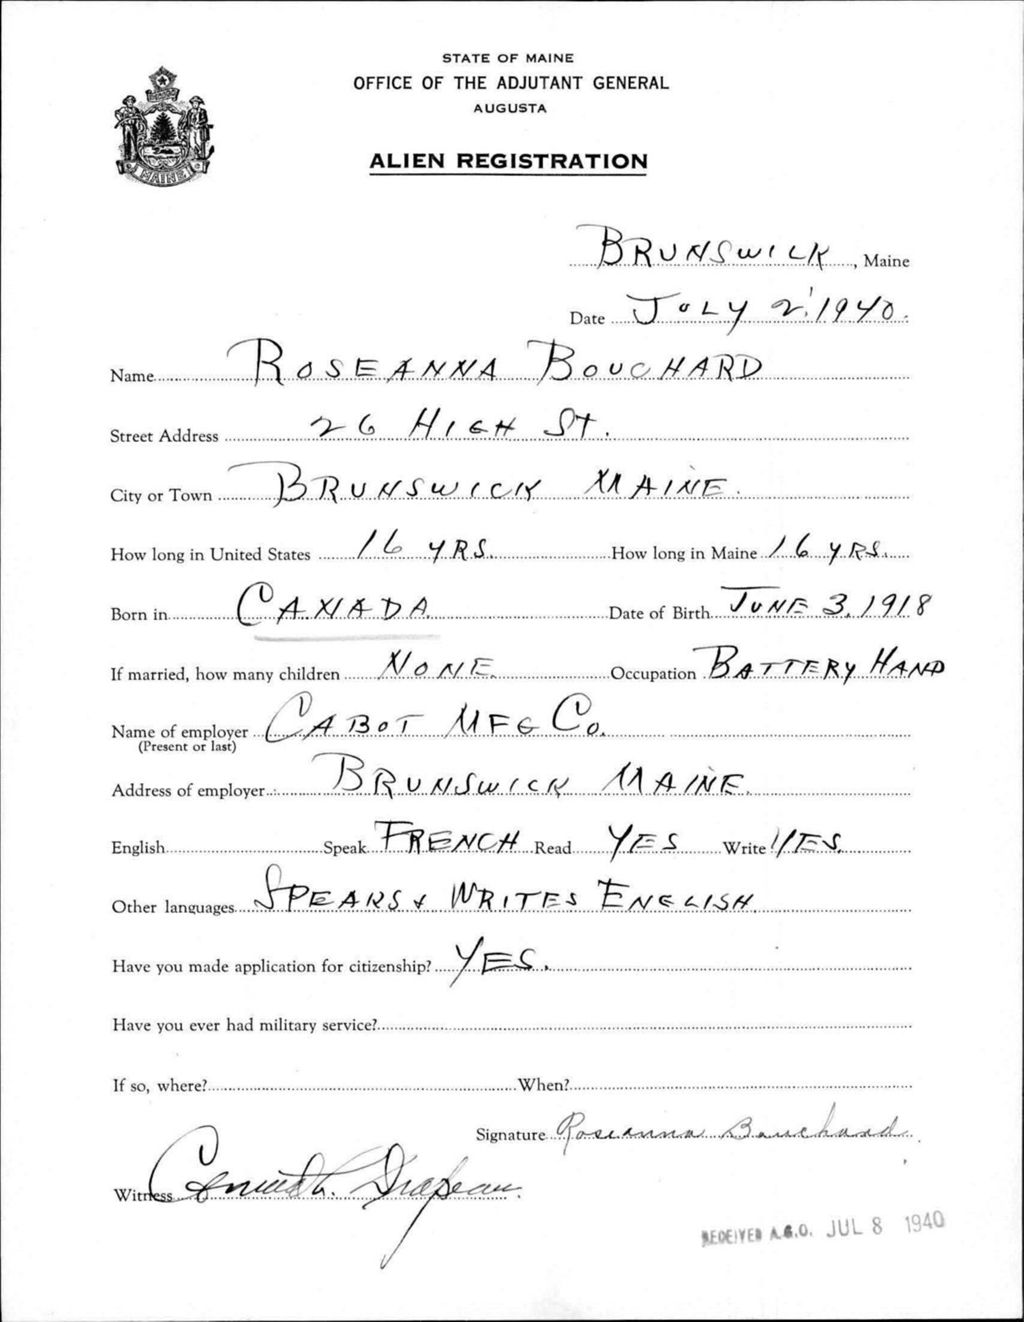 STATE OF MAINE
OFFICE OF THE ADJUTANT GENERAL
AUGUSTA
ALIEN REGISTRATION
MAINE
BRUNSWICK, Maine
Date JULY 2, 1940.
Name ROSEANNA BOUCHARD
Street Address 26 HIGH ST.
City or Town BRUNSWICK MAINE.
How long in United States 16 YRS. How long in Maine 16 YRS.
Born in CANADA. Date of Birth JUNE 3, 1918
If married, how many children NONE. Occupation BATTERY HAND
Name of employer CABOT MFG CO.
(Present or last)
Address of employer BRUNSWICK MAINE.
English Speak FRENCH Read YES Write YES.
Other languages SPEAKS + WRITES ENGLISH.
Have you made application for citizenship? YES.
Have you ever had military service?
If so, where? When?
Signature Roseanna Bouchard
Witness Drapeau
RECEIVED A.G.O. JUL 8 1940